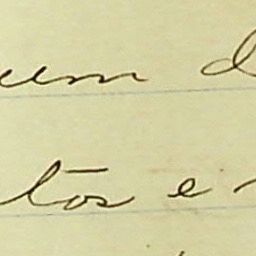 um d
tos e